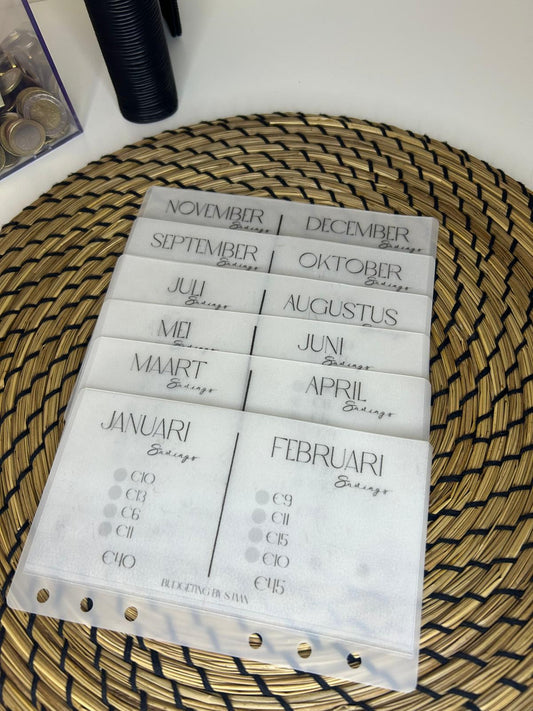 NOVEMBER
Savings
DECEMBER
Savings
SEPTEMBER
Savings
OKTOBER
Savings
JULI
Savings
AUGUSTUS
Savings
MEI
Savings
JUNI
Savings
MAART
Savings
APRIL
Savings
JANUARI
Savings
€10
€13
€6
€11
€40
FEBRUARI
Savings
€9
€11
€15
€10
€45
BUDGETING BY